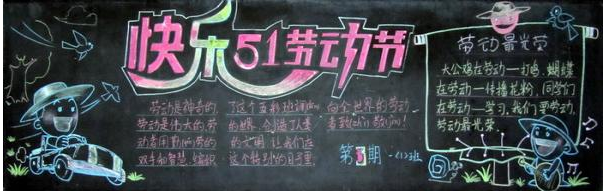 快乐51劳动节
劳动是神奇的
劳动是伟大的劳
动者用勤(qín)劳的
双手和智慧,编织
了这个五彩班斓(lán)
的世界,创造了人类
的文明 让我们在
这个特别的日子里
向全世界的劳动
者致(zhì)敬(jìng)!
第 期
劳动最光荣
大公鸡在劳动——打鸣,蝴蝶
在劳动——传播花粉,同学们
在劳动——学习,我们要劳动,
劳动最光荣。